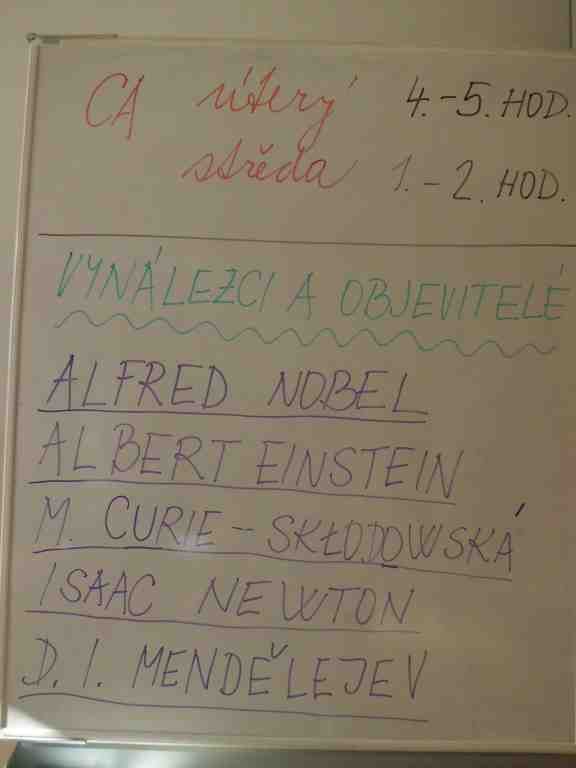 CA úterý 4.-5. HOD.
středa 1.-2. HOD.
VYNÁLEZCI A OBJEVITELÉ
ALFRED NOBEL
ALBERT EINSTEIN
M. CURIE-SKŁODOWSKÁ
ISAAC NEWTON
D. I. MENDĚLEJEV